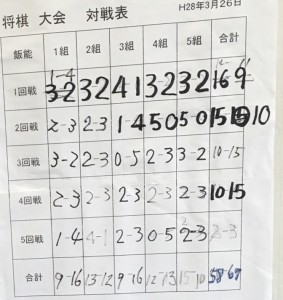 将棋 大会 対戦表 H28年3月26日
飯能 1組 2組 3組 4組 5組 合計
1-4
1回戦 32 32 41 32 32 169
2回戦 2-3 2-3 1-4 50 50 15 10
3回戦 3-2 2-3 0-5 2-3 3-2 10-15
4回戦 2-3 2-3 2-3 2-3 2-3 10 15
5回戦 1-4 4-1 2-3 0-5 2-3
合計 9-16 13-12 9-16 12-13 15-10 58-67